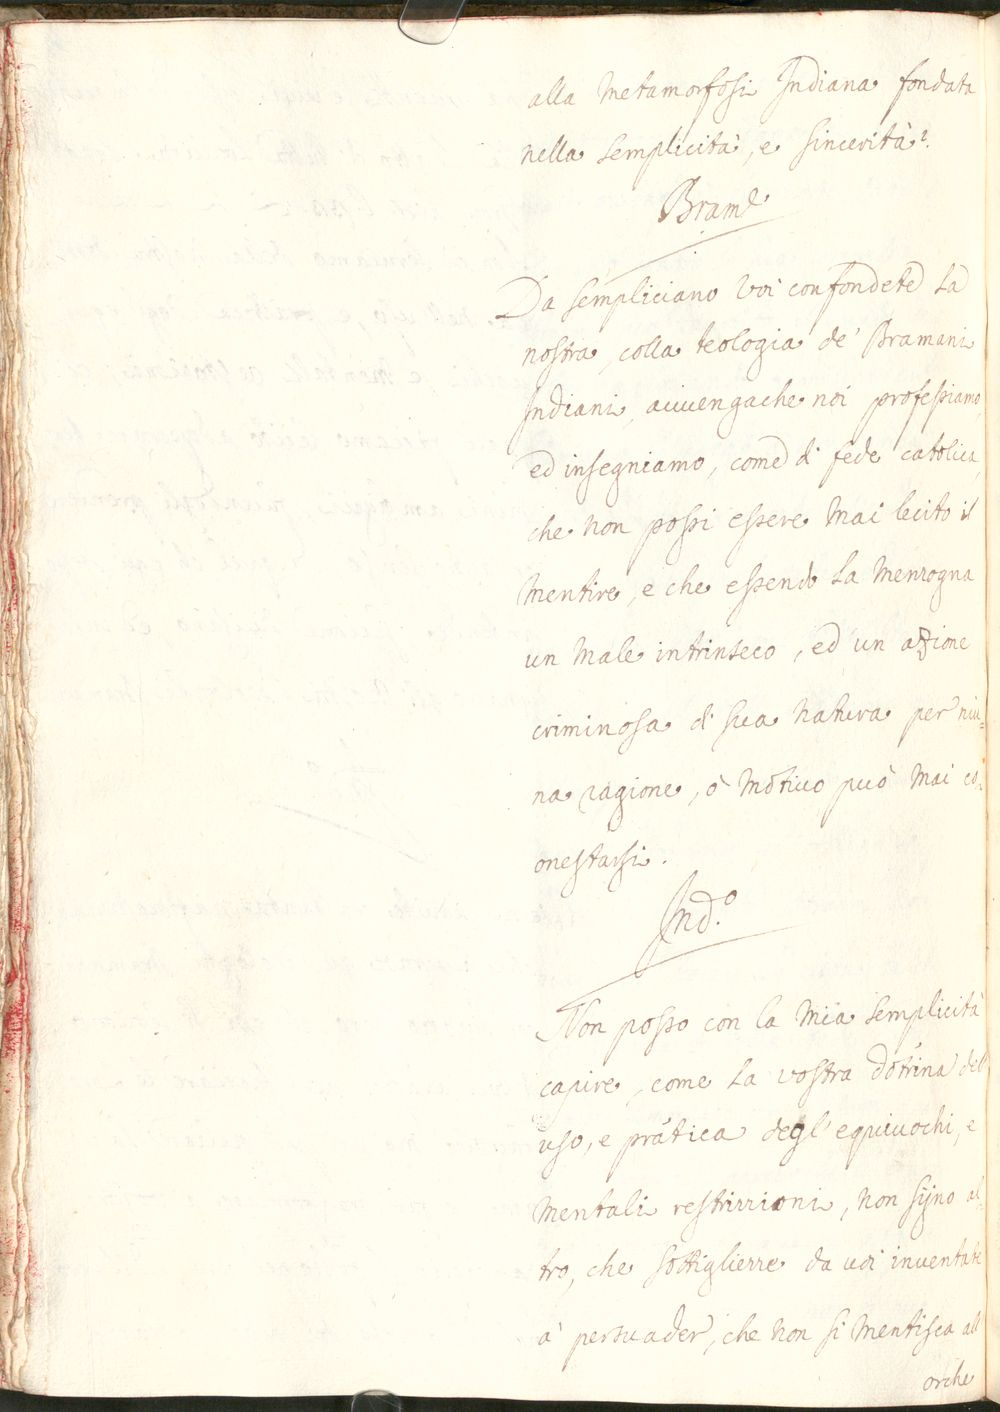 alla Metamorfosi Indiana fondata
nella semplicità, e sincerità?
Bram.e
Da sempliciano Voi confondete la
nostra, colla teologia de' Bramani
Indiani, avvengache noi professiamo,
ed insegniamo, come di fede catolica,
che non possi essere Mai lecito il
Mentire, e che essendo la Menzogna
un Male intrinseco, ed un azione
criminosa di sua natura per niu-
na ragione, ò Motivo può Mai co-
onestarsi.
Ind.o
Non posso con la Mia semplicità
capire, come la vostra dotrina del
uso, e prática degl' equivochi, e
mentali restrizzioni, non sijno al-
tro, che sottigliezze da voi inventate
à persuader, che non si Mentisca all
orche